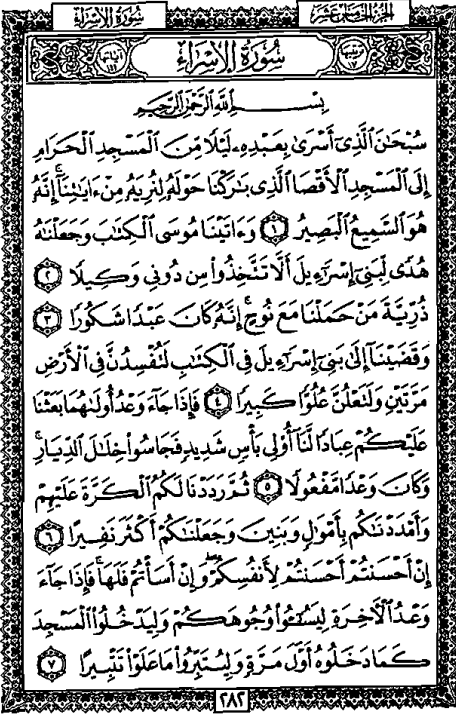 سُورَةُ الإِسْرَاءِ
الجزء الخامس عشر
سُورَةُ الإِسْرَاءِ
بِسْمِ اللَّهِ الرَّحْمَٰنِ الرَّحِيمِ
سُبْحَٰنَ ٱلَّذِىٓ أَسْرَىٰ بِعَبْدِهِۦ لَيْلًا مِّنَ ٱلْمَسْجِدِ ٱلْحَرَامِ
إِلَى ٱلْمَسْجِدِ ٱلْأَقْصَا ٱلَّذِى بَٰرَكْنَا حَوْلَهُۥ لِنُرِيَهُۥ مِنْ ءَايَٰتِنَآ ۚ إِنَّهُۥ
هُوَ ٱلسَّمِيعُ ٱلْبَصِيرُ ١ وَءَاتَيْنَا مُوسَى ٱلْكِتَٰبَ وَجَعَلْنَٰهُ
هُدًى لِّبَنِىٓ إِسْرَٰٓءِيلَ أَلَّا تَتَّخِذُوا۟ مِن دُونِى وَكِيلًا ٢
ذُرِّيَّةَ مَنْ حَمَلْنَا مَعَ نُوحٍ ۚ إِنَّهُۥ كَانَ عَبْدًا شَكُورًا ٣
وَقَضَيْنَآ إِلَىٰ بَنِىٓ إِسْرَٰٓءِيلَ فِى ٱلْكِتَٰبِ لَتُفْسِدُنَّ فِى ٱلْأَرْضِ
مَرَّتَيْنِ وَلَتَعْلُنَّ عُلُوًّا كَبِيرًا ٤ فَإِذَا جَآءَ وَعْدُ أُولَىٰهُمَا بَعَثْنَا
عَلَيْكُمْ عِبَادًا لَّنَآ أُو۟لِى بَأْسٍ شَدِيدٍ فَجَاسُوا۟ خِلَٰلَ ٱلدِّيَارِ ۚ
وَكَانَ وَعْدًا مَّفْعُولًا ٥ ثُمَّ رَدَدْنَا لَكُمُ ٱلْكَرَّةَ عَلَيْهِمْ
وَأَمْدَدْنَٰكُم بِأَمْوَٰلٍ وَبَنِينَ وَجَعَلْنَٰكُمْ أَكْثَرَ نَفِيرًا ٦
إِنْ أَحْسَنتُمْ أَحْسَنتُمْ لِأَنفُسِكُمْ ۖ وَإِنْ أَسَأْتُمْ فَلَهَا ۚ فَإِذَا جَآءَ
وَعْدُ ٱلْءَاخِرَةِ لِيَسُۥٓـُٔوا۟ وُجُوهَكُمْ وَلِيَدْخُلُوا۟ ٱلْمَسْجِدَ
كَمَا دَخَلُوهُ أَوَّلَ مَرَّةٍ وَلِيُتَبِّرُوا۟ مَا عَلَوْا۟ تَتْبِيرًا ٧
٢٨٢